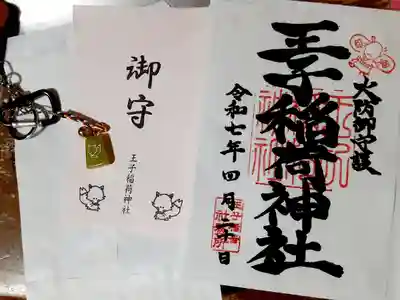 火防御守護
王子稲荷神社
令和七年四月二十日
御守
王子稲荷神社